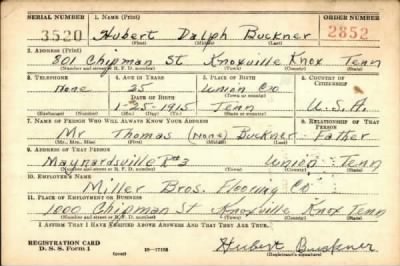 SERIAL NUMBER 1. NAME (Print) ORDER NUMBER
3520 Hubert Dalph Buckner 2852
(First) (Middle) (Last)
2. ADDRESS (Print)
801 Chipman St Knoxville Knox Tenn
(Number and street or R. F. D. number) (Town) (County) (State)
3. TELEPHONE 4. AGE IN YEARS 5. PLACE OF BIRTH 6. COUNTRY OF CITIZENSHIP
None 25 Union Co
DATE OF BIRTH (Town or county)
1-25-1915 Tenn U.S.A.
(Exchange) (Number) (Mo.) (Day) (Yr.) (State or country)
7. NAME OF PERSON WHO WILL ALWAYS KNOW YOUR ADDRESS 8. RELATIONSHIP OF THAT PERSON
Mr Thomas (None) Buckner Father
(Mr., Mrs., Miss) (First) (Middle) (Last)
9. ADDRESS OF THAT PERSON
Maynardsville R#3 Union Tenn
(Number and street or R. F. D. number) (Town) (County) (State)
10. EMPLOYER'S NAME
Miller Bros. Flooring Co
11. PLACE OF EMPLOYMENT OR BUSINESS
1000 Chipman St Knoxville Knox Tenn
(Number and street or R. F. D. number) (Town) (County) (State)
I AFFIRM THAT I HAVE VERIFIED ABOVE ANSWERS AND THAT THEY ARE TRUE.
REGISTRATION CARD
D. S. S. Form 1 (over) Hubert Buckner
(Registrant's signature)